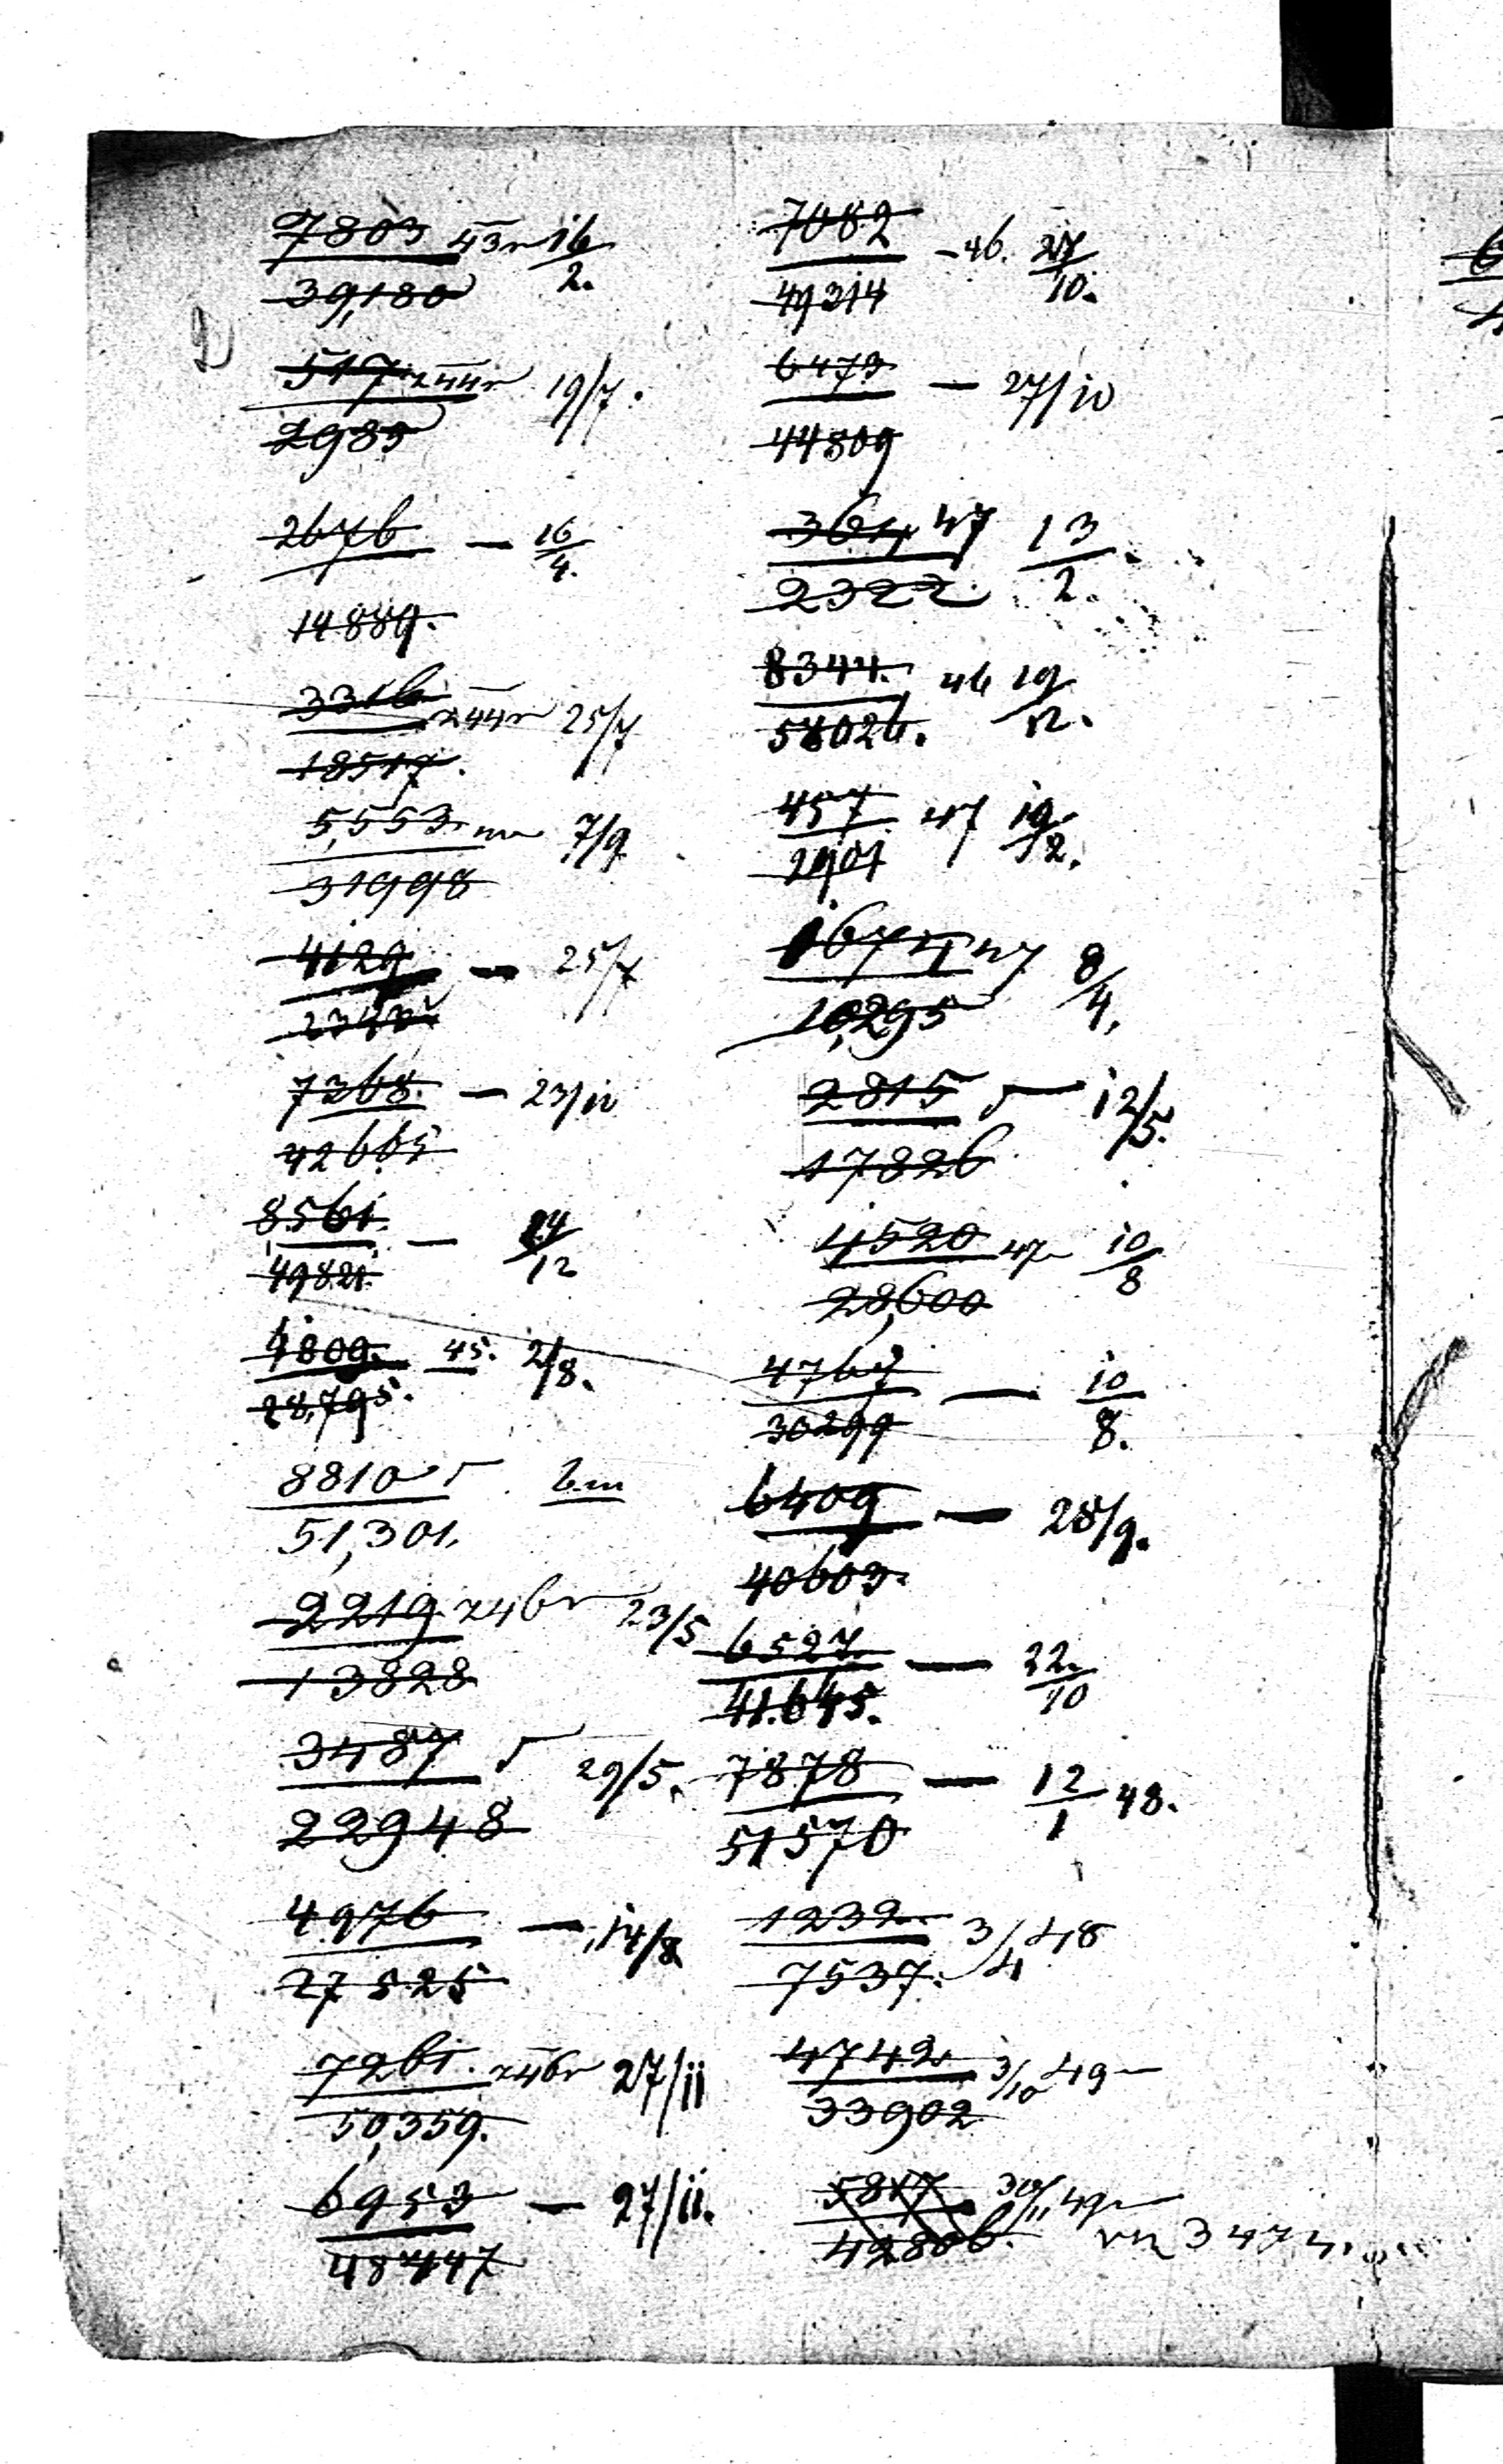 7803 43 г 16/2.
39,180
2)
517 244 г 19/7.
2985
2676 — 16/4.
14889.
3316 244 г 25/7
18517.
5,553 7/9
31998
4129 — 25/7
7368. — 23/10
42665
8561. — 24/12
49821.
4809. 45. 2/8.
28,795.
8810
51,301.
2219 г 46 г 23/5
13828
3487 29/5.
22948
4976 — 14/8
27525
7261. г 46 г 27/ii
50,359.
6953 — 27/ii.
48447
7082 — 46. 27/10.
49214
6473 — 27/10
44809
361, 47 13/2.
2322.
8344. 46 19/12.
58026.
457 47 19/12.
2901
1674 47 8/4,
10,295
2815 — 12/5.
17826
4520 47 — 10/8
28,600
4767 — 10/8.
30299
6409 — 28/9.
40603.
6527 — 22./10
41.645.
7878 — 12/1 48.
51570
1232 3/4 48
7537.
4742 3/10 49 —
33902
5817 30/11 49 —
42806. 3474.